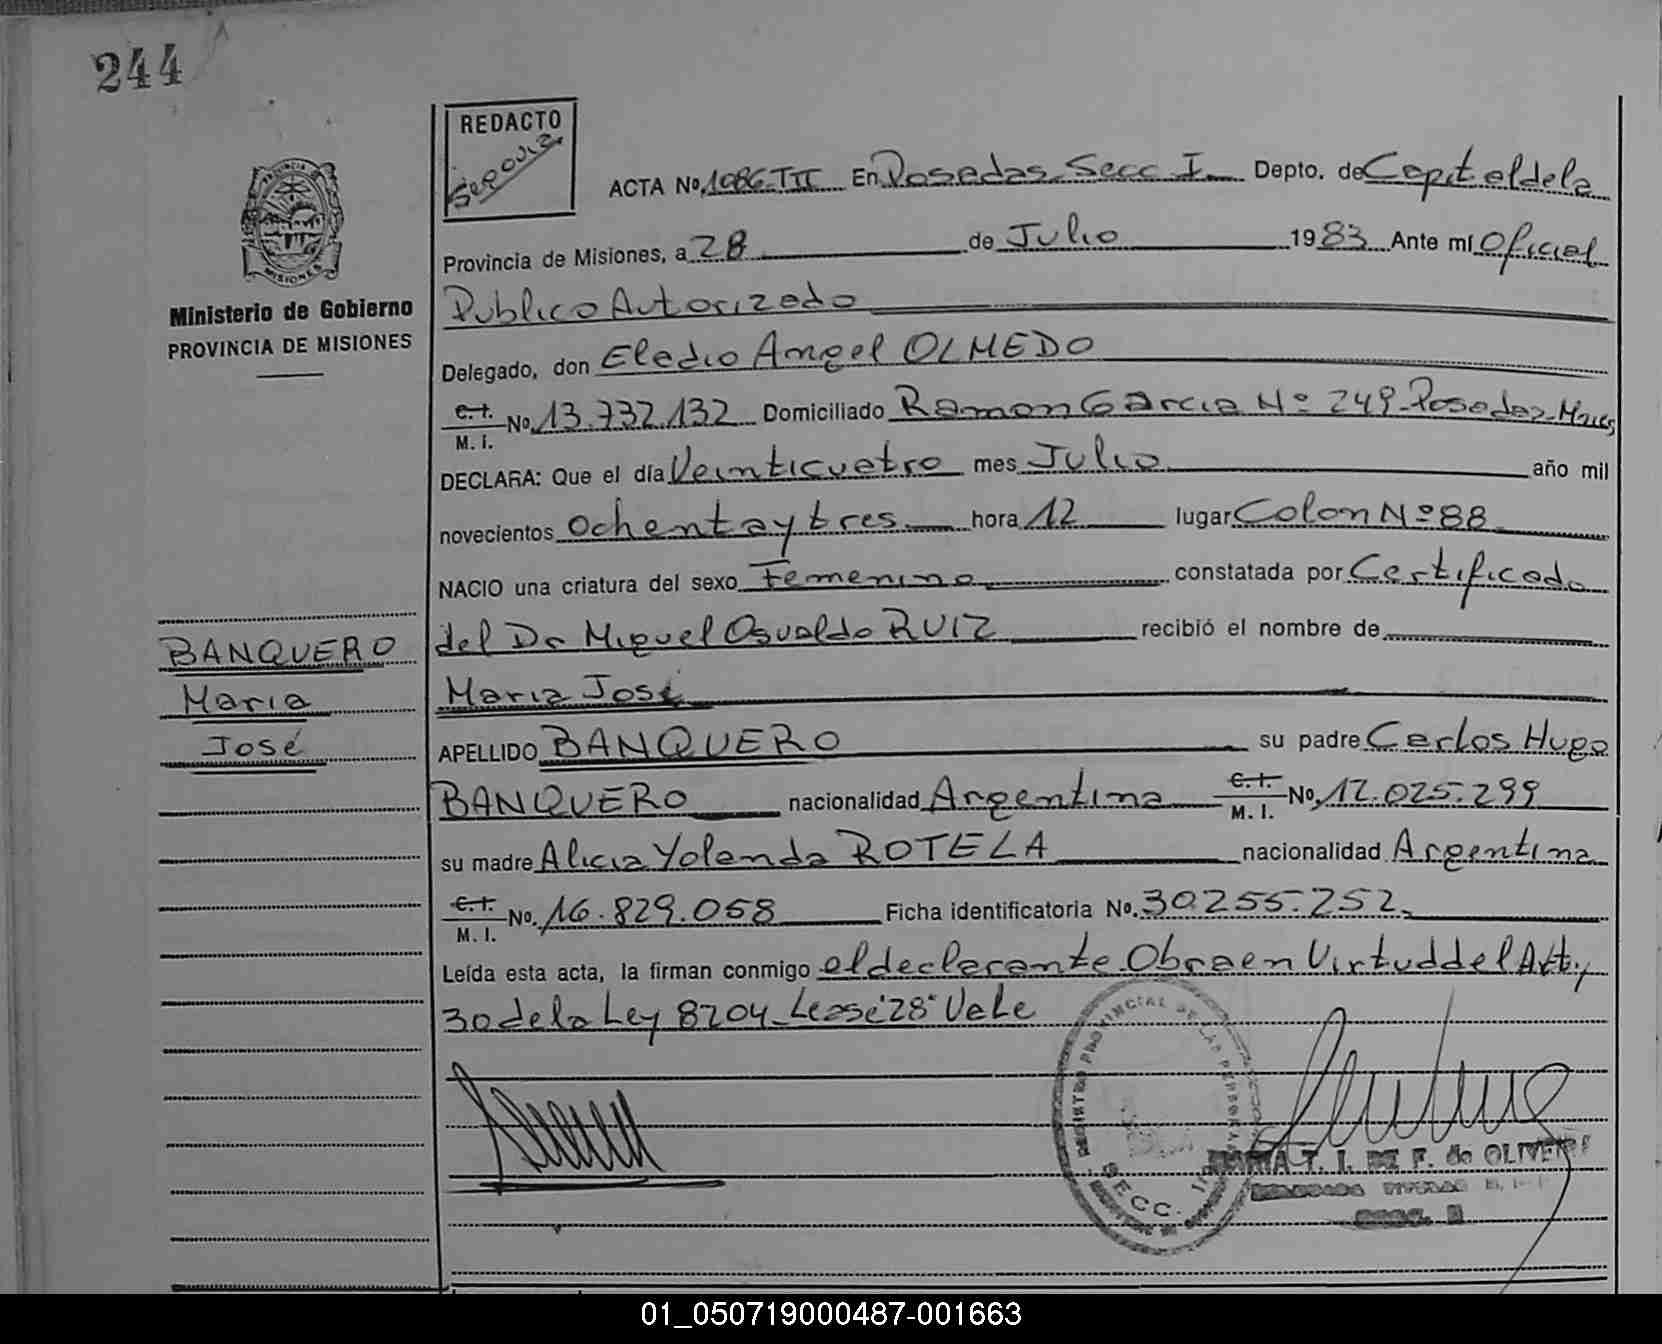 244
REDACTO
ACTA No. 1086-TII En Posadas Secc I Depto. de Capital de la
Provincia de Misiones, a 28 de Julio 1983 Ante mí Oficial
Publico Autorizado
Delegado, don Eladio Angel OLMEDO
C. I. M. I. No. 13.732.132 Domiciliado Ramon Garcia Nº 249-Posadas-Mnes
DECLARA: Que el día Veinticuatro mes Julio año mil
novecientos Ochenta y tres hora 12 lugar Colon Nº 88
NACIO una criatura del sexo Femenino constatada por Certificado
del Dr Miguel Osvaldo RUIZ recibió el nombre de
Maria José
APELLIDO BANQUERO su padre Carlos Hugo
BANQUERO nacionalidad Argentina C. I. M. I. No. 12.025.299
su madre Alicia Yolanda ROTELA nacionalidad Argentina
C. I. M. I. No. 16.829.058 Ficha identificatoria No. 30.255.252
Leída esta acta, la firman conmigo el declarante Obra en Virtud del Art,
30 de la Ley 8204_Lease "28" Vale
PROVINCIA
MISIONES
Ministerio de Gobierno
PROVINCIA DE MISIONES
BANQUERO
Maria
José
REGISTRO PROVINCIAL DE LAS PERSONAS
SECC. 1ª
T. I. F. de OLIVEIRA
01_050719000487-001663